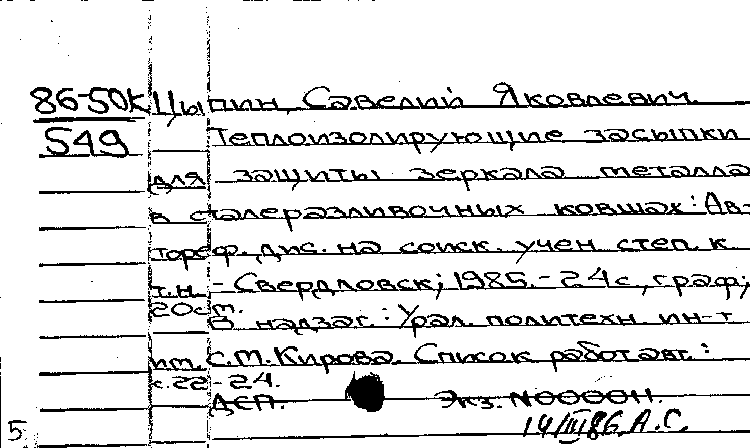 86-50К Цыпин, Савелий Яковлевич.
549 Теплоизолирующие засыпки
для защиты зеркала металла
в сталеразливочных ковшах: Ав-
тореф. дис. на соиск. учен степ. к
т.н. - Свердловск; 1985. - 24 с, граф;
20 см.
В надзаг.: Урал. политехн ин-т
им. С.М. Кирова. Список работ авт.:
с. 22-24.
ДСП. Экз. N000011.
5 14/III86 А.С.